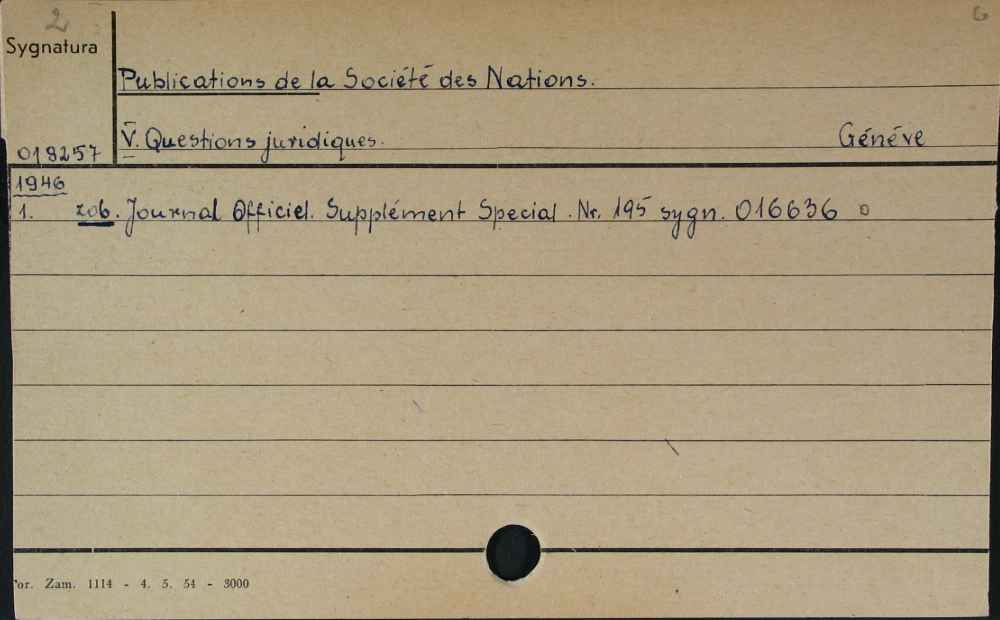 2
G
Sygnatura
Publications de la Société des Nations.
V. Questions juridiques. Généve
018257
1946
1. zob. Journal Officiel. Supplément Special. Nr. 195 sygn. 016636
Por. Zam. 1114 - 4. 5. 54 - 3000